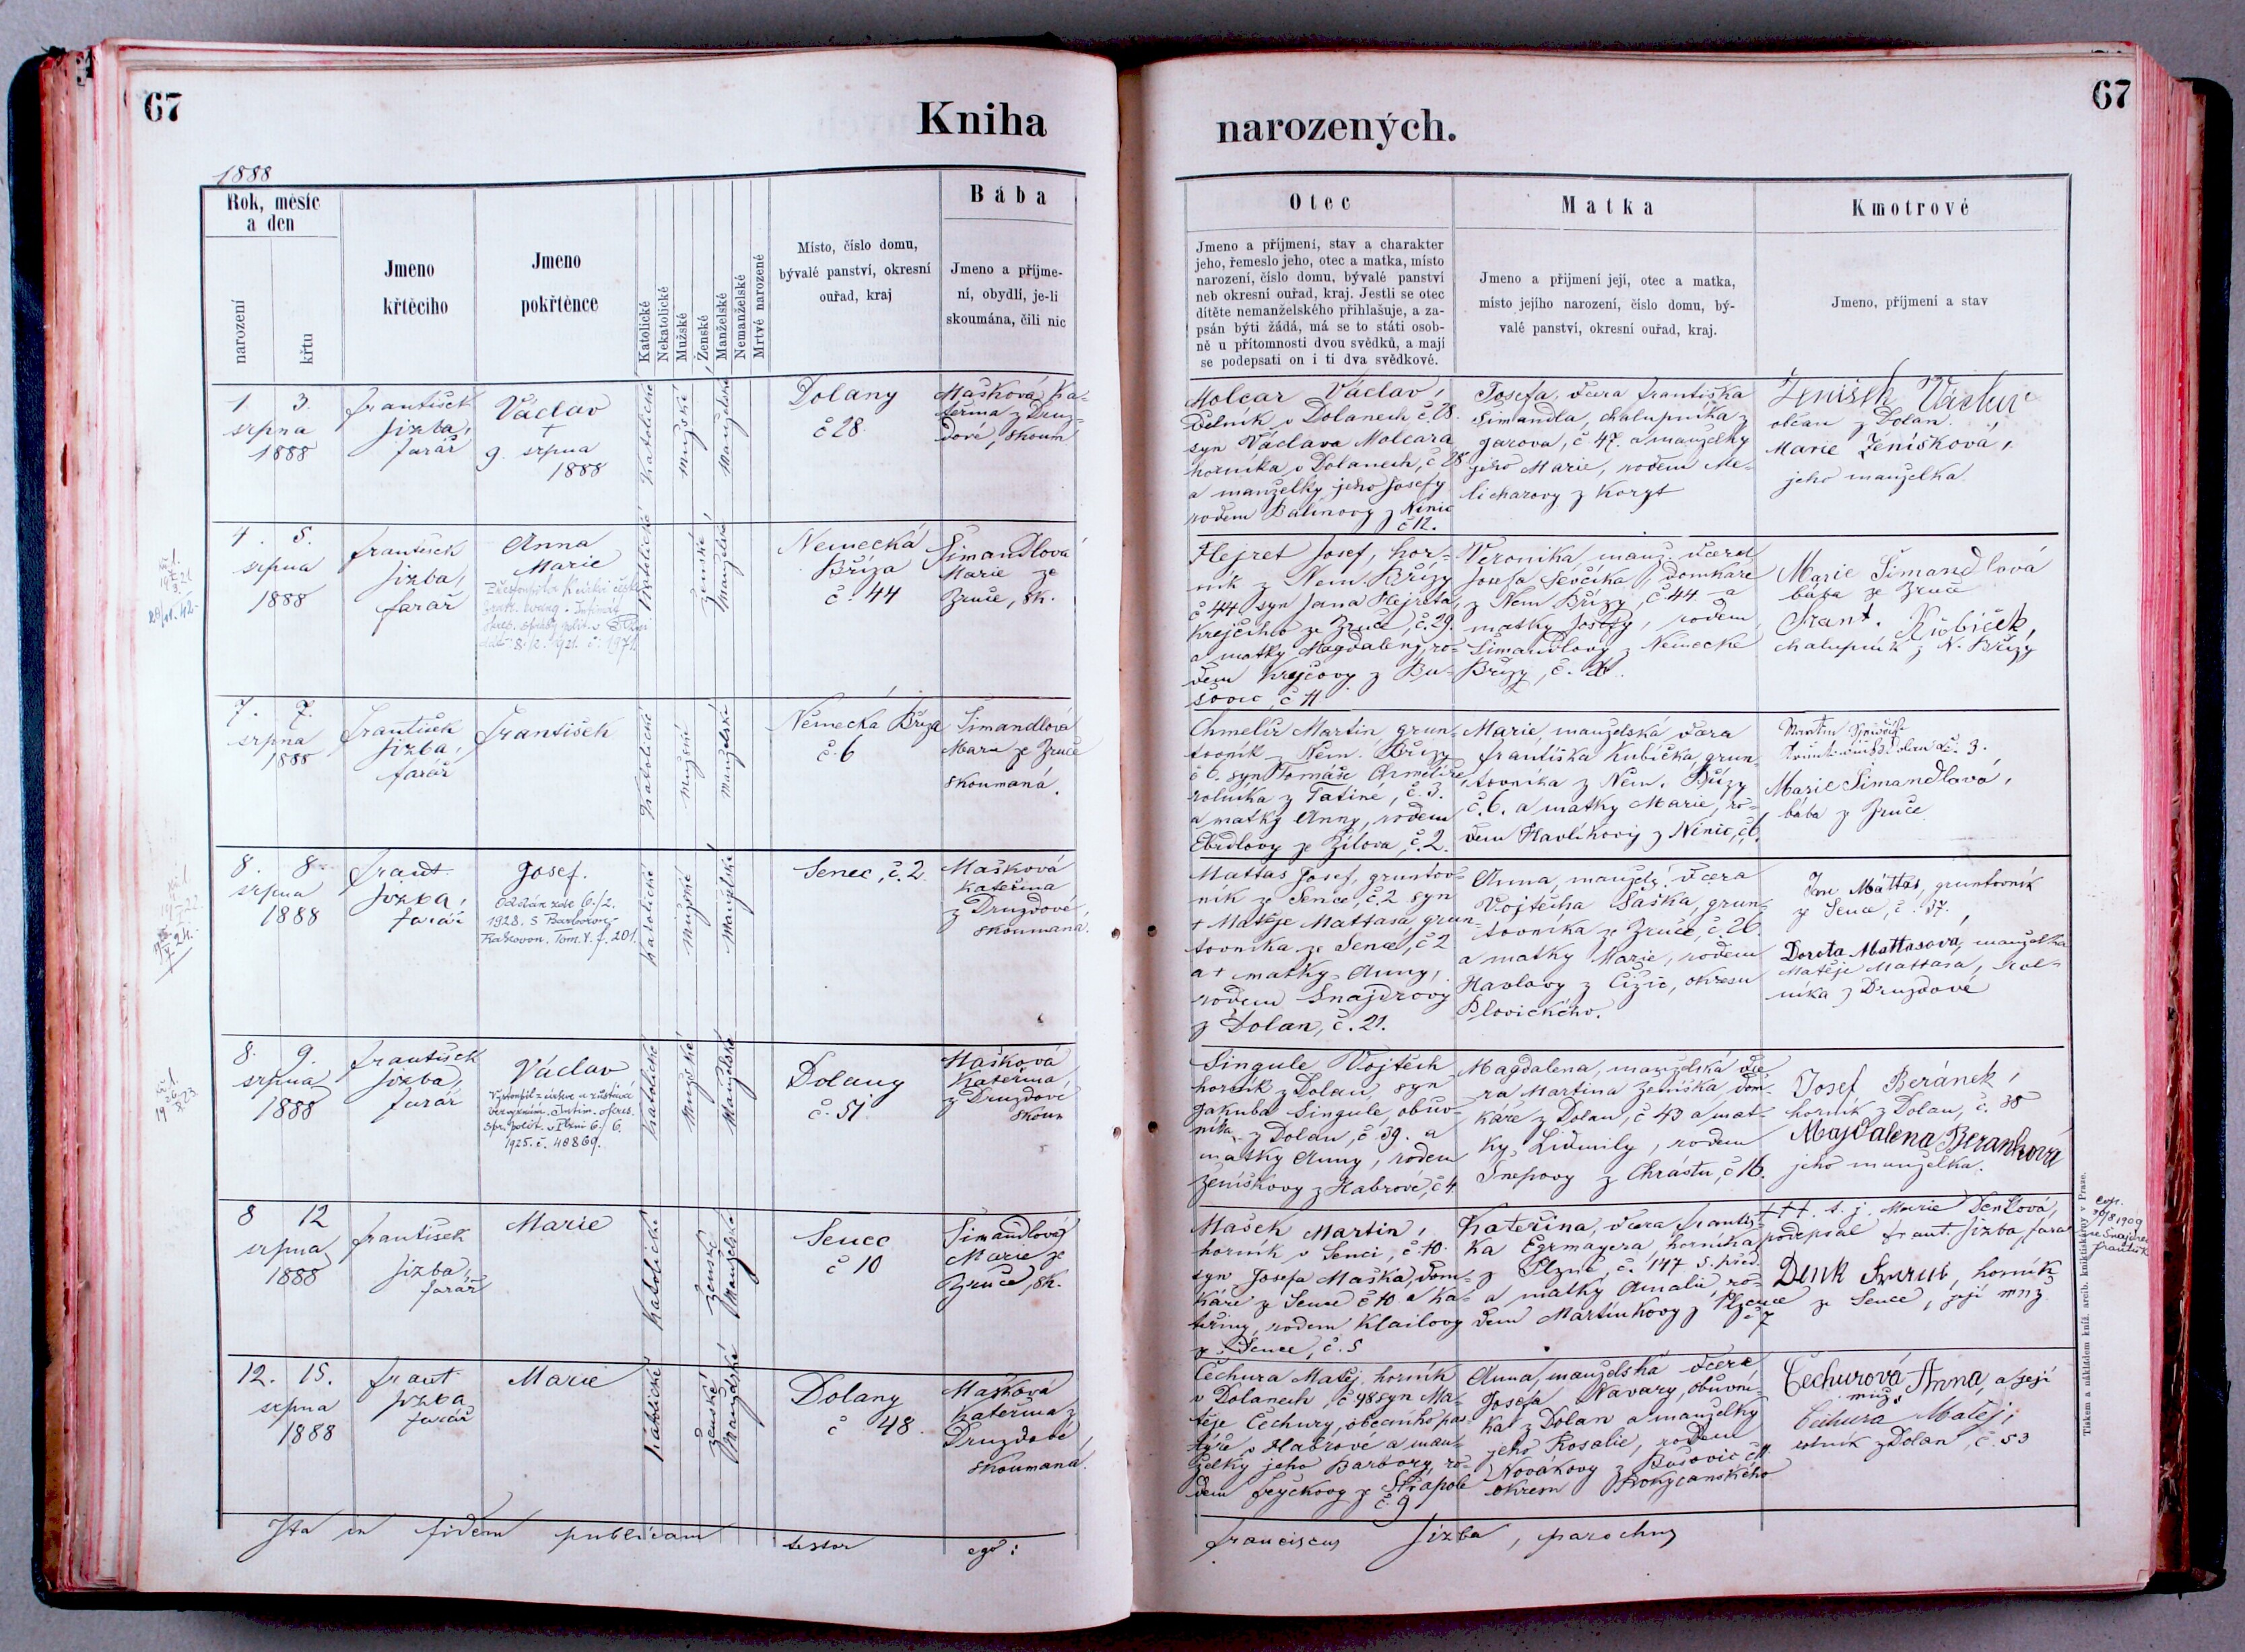 67
Kniha
1888
Rok, měsíc
a den
narození
křtu
Jmeno
křtěcího
Jmeno
pokřtěnce
Katolické
Nekatolické
Mužské
Ženské
Manželské
Nemanželské
Mrtvé narozené
Místo, číslo domu,
bývalé panství, okresní
ouřad, kraj
Bába
Jmeno a příjme-
ní, obydlí, je-li
skoumána, čili nic
1. 3.
srpna
1888
František
Jizba,
farář
Václav
+
9. srpna
1888
Katolické
Mužské
Manželské
Dolany
č 28.
Mašková Ka-
teřina z Druz-
dové, skoum
4. 5.
srpna
1888
František
Jizba,
farář
Anna
Marie
Katolické
ženské
Manželské
Německá
Bříza
č. 44
Šimandlová
Marie ze
Zruče, sk.
7. 7.
srpna
1888
František
Jizba,
farář
František
Katolické
Mužské
Manželské
Německá Bříza
č. 6
Šimandlová
Marie ze Zruče
skoumaná.
8. 8.
srpna
1888
Frant.
Jizba,
farář
Josef.
Oddán zde 6./2.
1928. s Barborou
Tom. V. f. 201.
Katolické
Mužské
Manželské
Senec, č. 2.
Mašková
Kateřina
z Druzdové
skoumaná.
8. 9.
srpna
1888
František
Jizba,
farář
Václav
Vystoupil z církve a zůstává
bez vyznání. Intim. okres.
spr. polit. v Plzni 6./6.
1925. č. 40869.
Katolické
Mužské
Manželské
Dolany
č. 51
Mašková
Kateřina
z Druzdové
skoum
8 12
srpna
1888
František
Jizba,
farář
Marie
Katolické
ženské
Manželské
Senec
č 10
Šimandlová
Marie ze
Zruče, sk.
12. 15.
srpna
1888
Frant
Jizba
farář
Marie
Katolické
ženské
Manželské
Dolany
č 48.
Mašková
Kateřina z
Druzdové,
skoumaná.
Ita in fidem publicam testor ego:
67
narozených.
Otec
Jmeno a příjmení, stav a charakter
jeho, řemeslo jeho, otec a matka, místo
narození, číslo domu, bývalé panství
neb okresní ouřad, kraj. Jestli se otec
dítěte nemanželského přihlašuje, a za-
psán býti žádá, má se to státi osob-
ně u přítomnosti dvou svědků, a mají
se podepsati on i ti dva svědkové.
Matka
Jmeno a přijmení její, otec a matka,
místo jejího narození, číslo domu, bý-
valé panství, okresní ouřad, kraj.
Kmotrové
Jmeno, příjmení a stav
Molcar Václav,
dělník v Dolanech č. 28.
syn Václava Molcara
horníka v Dolanech, č 28
a manželky jeho Josefy
rodem Balínovy z Ninic
č 12.
Josefa, dcera Františka
Šimandla, chalupníka z
Jarova, č 47. a manželky
jeho Marie, rodem Me-
licharovy z Koryt
Ženíšek Václav
občan z Dolan.
Marie Ženíšková,
jeho manželka.
Hejret Josef, hor-
ník z Něm. Břízy
č 44 syn Jana Hejreta,
Krejčího ze Zruče, č. 29.
a matky Magdaleny, ro-
dem Krejčovy z Bu-
šovic, č 11
Veronika, manž. dcera
Josefa Ševčíka, domkáře
z Něm Břízy, č 44. a
matky Josefy, rodem
Šimandlovy z Německé
Břízy, č.
Marie Šimandlová
bába ze Zruče
Frant. Kubíček,
chalupník z N. Břízy
Chmelíř Martin, grun-
tovník Něm. Břízy
č 6. syn Tomáše Chmelíře
rolníka z Tatiné, č. 3.
a matky Anny, rodem
Ebrdlovy ze Žilova, č. 2.
Marie, manželská dcera
Františka Kubíčka, grun-
tovníka z Něm. Břízy
č. 6. a matky Marie, ro-
dem Havlíkovy z Ninic, č 6.
Marie Šimandlová,
bába ze Zruče
Mattas Josef, gruntov-
ník ze Sence, č. 2 syn
+ Matěje Mattasa, grun-
tovníka ze Sence, č 2
a + matky Anny,
rodem Šnajdrovy
z Dolan, č. 21.
Anna, manžels. dcera
Vojtěcha Šaška, grun-
tovníka ze Zruče, č. 26
a matky Marie, rodem
Havlovy z Čižic, okresu
Plovického.
Jan Mattas, gruntovník
ze Sence, č. 37.
Dorota Mattasová, manželka
Matěje Mattasa, rol-
níka z Druzdové
Singule Vojtěch
horník z Dolan, syn
Jakuba Singule, obuv-
níka z Dolan, č. 39. a
matky Anny, rodem
Ženíškovy z Habrové, č 4.
Magdalena, manželská dce-
ra Martina Ženíška, dom-
káře z Dolan, č 43 a mat-
ky Lidmily, rodem
Šnepovy z Chrástu, č 16.
Josef Beránek,
horník z Dolan, č. 38
Majdalena Beranková
jeho manželka.
Mašek Martin,
horník v Senci, č. 10.
syn Josefa Maška, dom-
káře ze Sence č 10 a Ka-
teřiny, rodem Klailovy
ze Sence, č. 5
Kateřina, dcera Františ-
ka Egrmayera, horníka
z Plzně, č. 147 s. před.
a matky Amalie, ro-
dem Martínkovy z Plzně
č 7
+++ t. j. Marie Denková,
podepsal Frant. Jizba, farář
Denk, horník
ze Sence, její muž
Čechura Matěj, horník
v Dolanech, č 48 syn Ma-
těje Čechury, obecního pas-
týře v Habrové a man-
želky jeho Barbory, ro-
dem Fryčkovy ze Střapole
č. 9
Anna, manželská dcera
Josefa Navary, obuvní-
ka z Dolan a manželky
jeho Rosalie, rodem
Novákovy z Bušovic č 11.
okresu Rokycanského
Čechurová Anna, a její
muž,
Čechura Matěj,
rolník z Dolan, č. 53
Franciscus Jizba, parochus
Tiskem a nákladem kníž. arcib. knihtiskárny v Praze.